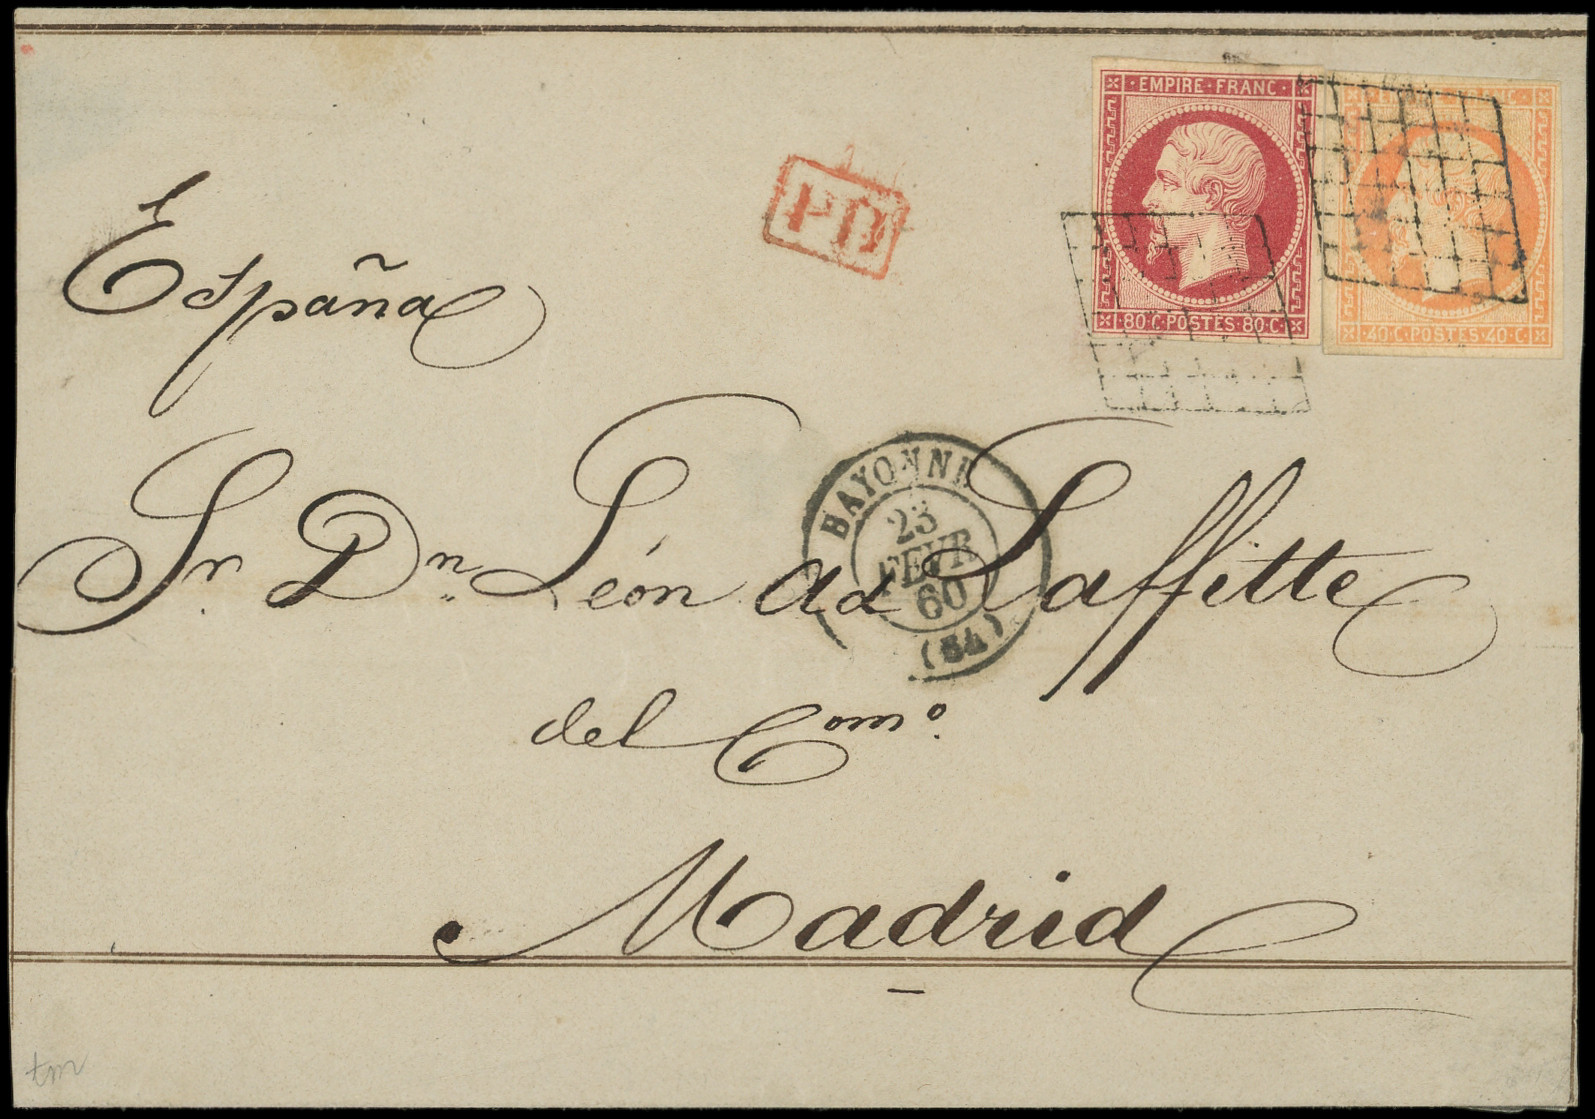 EMPIRE·FRANC·
80·C·POSTES·80·C·
40·C·POSTES·40·C·
PD
España
BAYONNE
23
FEVR
60
(64)
Sr. Dn. León Ad Laffitte
del Como.
Madrid
tm